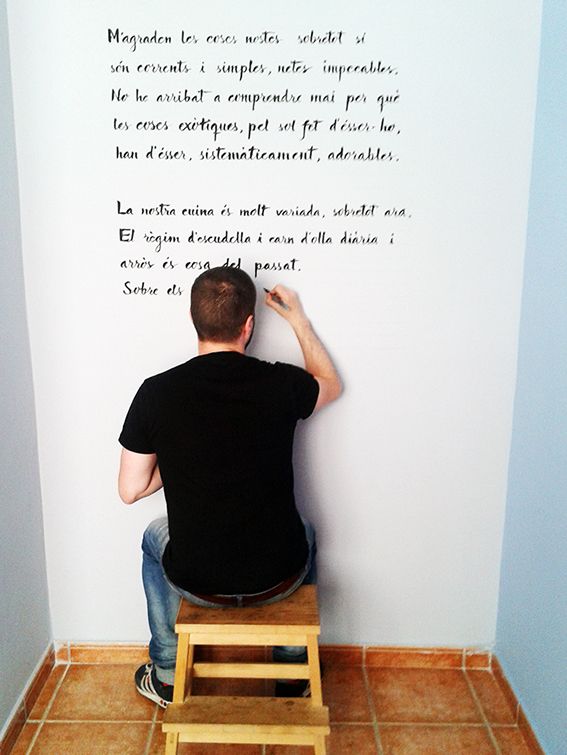 M'agraden les coses nostes sobretot si
són corrents i simples, netes impecables.
No he arribat a comprendre mai per què
les coses exòtiques, pel sol fet d'ésser-ho,
han d'ésser, sistemàticament, adorables.
La nostra cuina és molt variada, sobretot ara.
El règim d'escudella i carn d'olla diària i
arròs és cosa del passat.
Sobre els